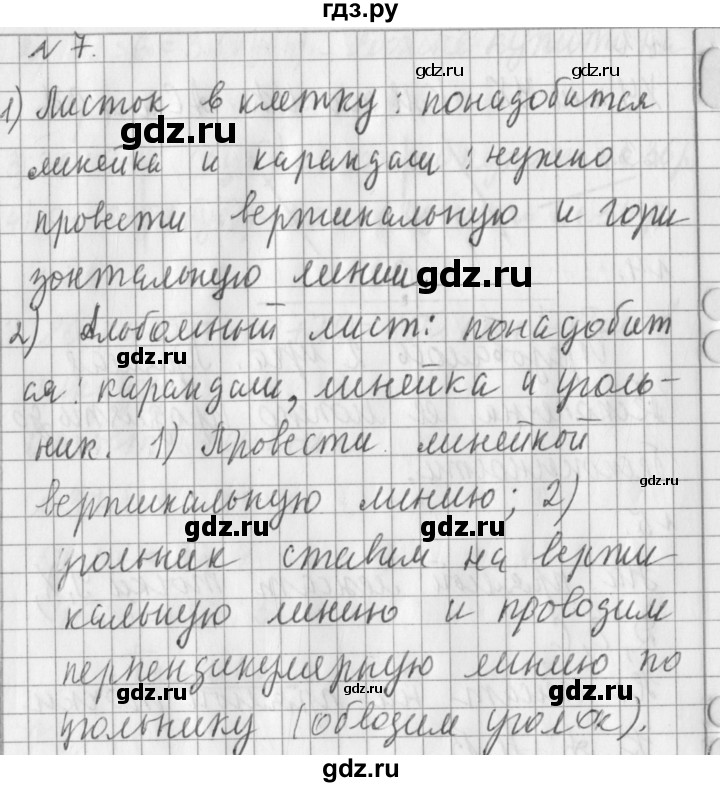 гдз.ру
N 7.
gdz.ru
1) Листок в клетку: понадобится
gdz.ru
линейка и карандаш: нужно
провести вертикальную и гори
зонтальную линии
gdz.ru
2) Альбомный лист: понадобит
gdz.ru
ся: карандаш, линейка и уголь-
ник. 1) Провести линейкой
gdz.ru
вертикальную линию; 2)
gdz.ru
gdz.ru
угольник ставим на верти-
кальную линию и проводим
перпендикулярную линию по
gdz.ru
gdz.ru
gdz.ru
угольнику (обводим уголок).
gdz.ru